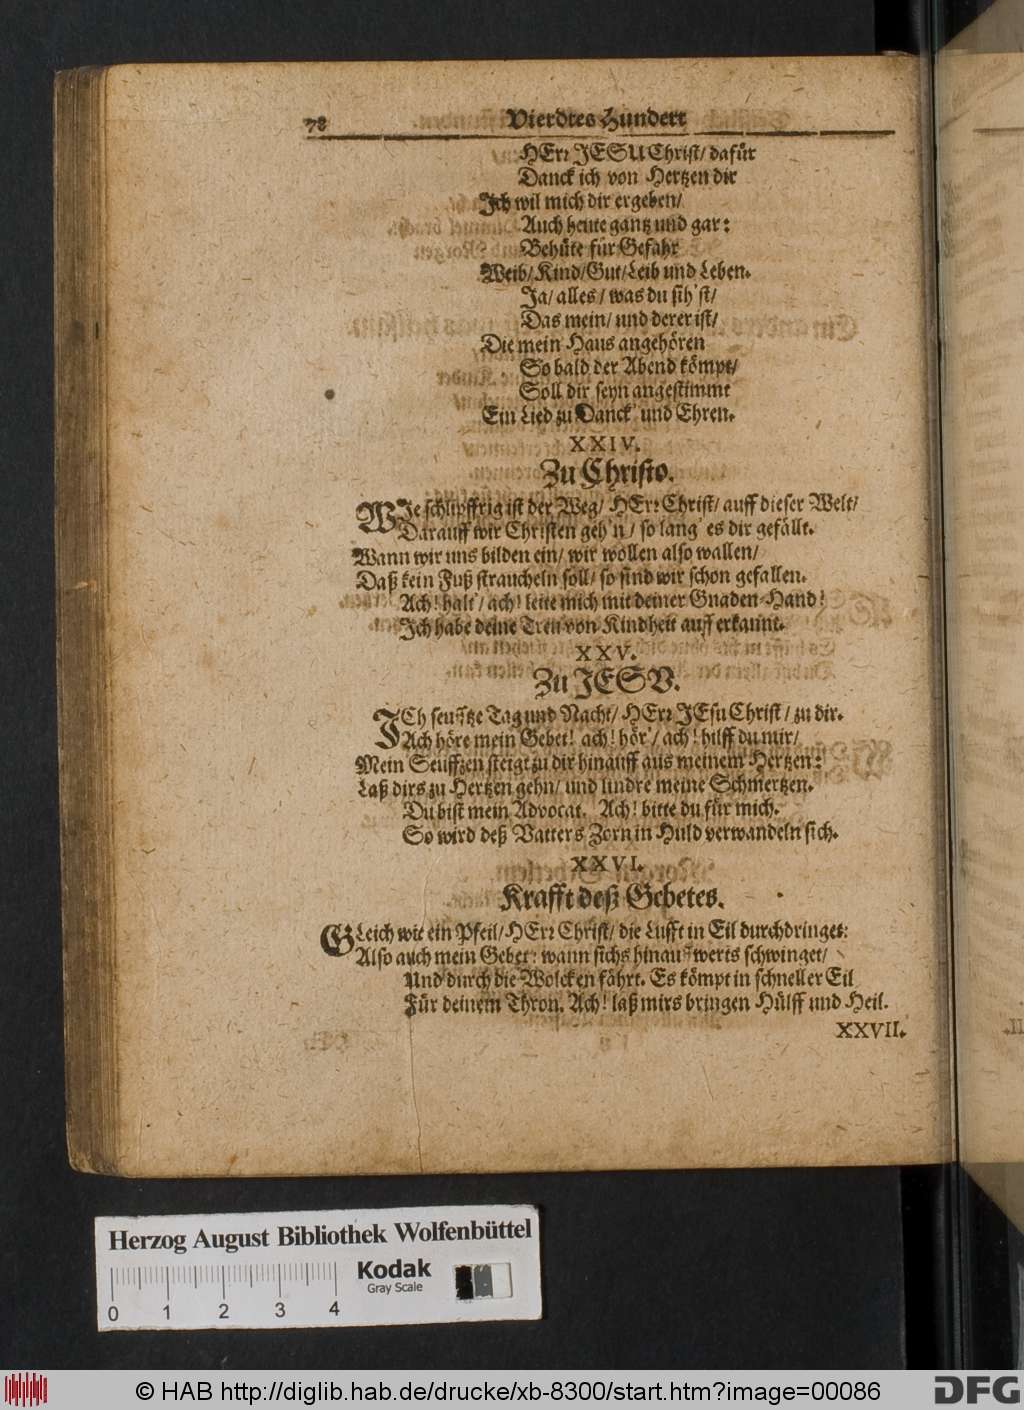 78 Vierdtes Hundert
HErr JESU Christ/ dafür
Danck ich von Hertzen dir
Ich wil mich dir ergeben/
Auch heute gantz und gar:
Behüte für Gefahr
Weib/ Kind/ Gut/ Leib und Leben.
Ja/ alles/ was du sih'st/
Das mein/ und derer ist/
Die mein Haus angehören
So bald der Abend kömpt/
Soll dir seyn angestimmt
Ein Lied zu Danck' und Ehren.
XXIV.
Zu Christo.
WIe schlipffrig ist der Weg/ HErr Christ/ auff dieser Welt/
Darauff wir Christen geh'n/ so lang' es dir gefällt.
Wann wir uns bilden ein/ wir wollen also wallen/
Daß kein Fuß straucheln soll/ so sind wir schon gefallen.
Ach! halt'/ ach! leite mich mit deiner Gnaden-Hand!
Ich habe deine Treu von Kindheit auff erkannt.
XXV.
Zu JESV.
ICh seufftze Tag und Nacht/ HErr JEsu Christ/ zu dir.
Ach höre mein Gebet! ach! hör'/ ach! hilff du mir/
Mein Seufftzen steigt zu dir hinauff aus meinem Hertzen:
Laß dirs zu Hertzen gehn/ und lindre meine Schmertzen.
Du bist mein Advocat. Ach! bitte du für mich.
So wird deß Vatters Zorn in Huld verwandeln sich.
XXVI.
Krafft deß Gebetes.
GLeich wie ein Pfeil/ HErr Christ/ die Lufft in Eil durchdringet:
Also auch mein Gebet: wann sichs hinauffwerts schwinget/
Und durch die Wolcken fährt. Es kömpt in schneller Eil
Für deinem Thron. Ach! laß mirs bringen Hülff und Heil.
XXVII.
Herzog August Bibliothek Wolfenbüttel
Kodak
Gray Scale
0 1 2 3 4
© HAB http://diglib.hab.de/drucke/xb-8300/start.htm?image=00086
DFG